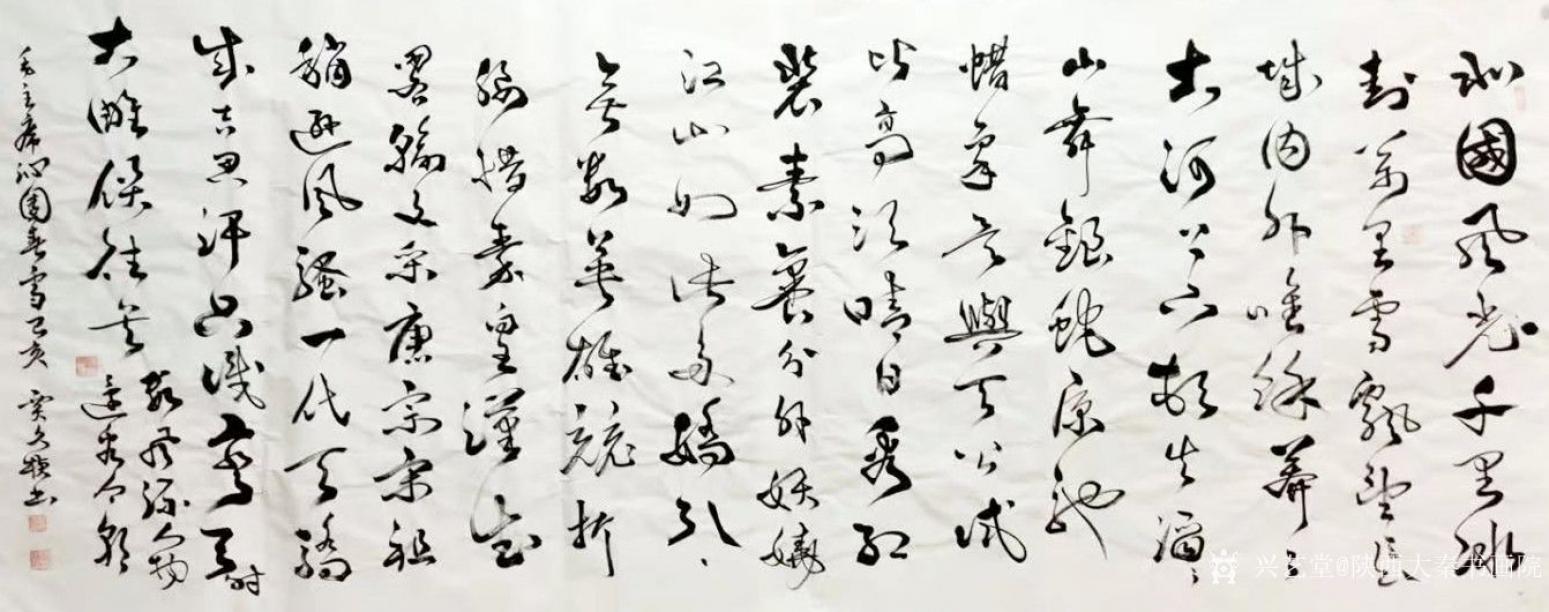 北國風光千里冰
封萬里雪飄望長
城内外唯餘莽〻
大河上下頓失滔〻
山舞銀蛇原馳
蜡象欲與天公試
比高須晴日看紅
裝素裹分外妖嬈
江山如此多嬌引
無數英雄競折
腰惜秦皇漢武
略輸文采唐宗宋祖
稍遜風騷一代天驕
成吉思汗只識彎弓射
大雕俱往矣
數風流人物
還看今朝
毛主席沁園春雪己亥 賈文書
兴艺堂@陕西大秦书画院